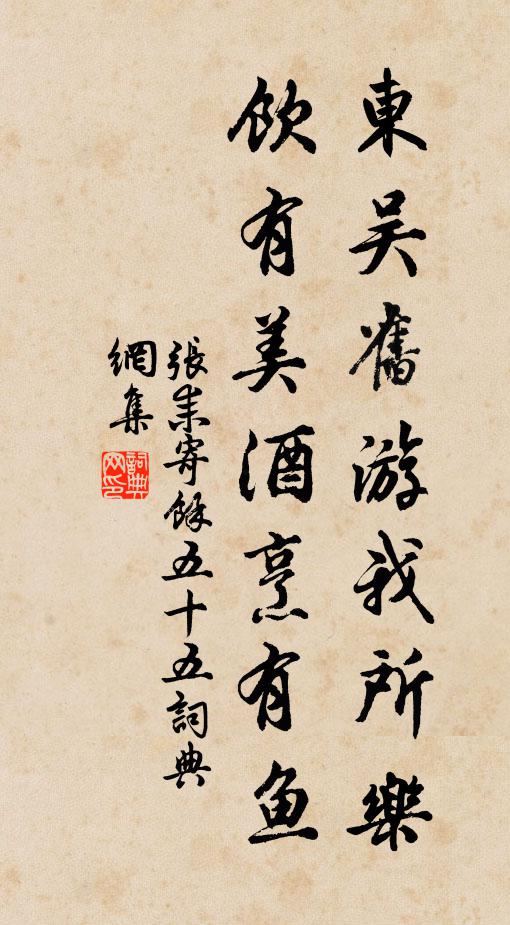 東吴舊游我所樂
飲有美酒烹有鱼
張耒寄餘五十五詞典
網集
詞典
网印